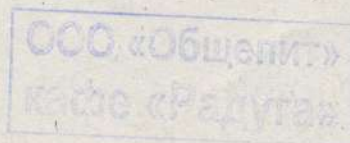 ООО «Общепит»
кафе «Радуга»